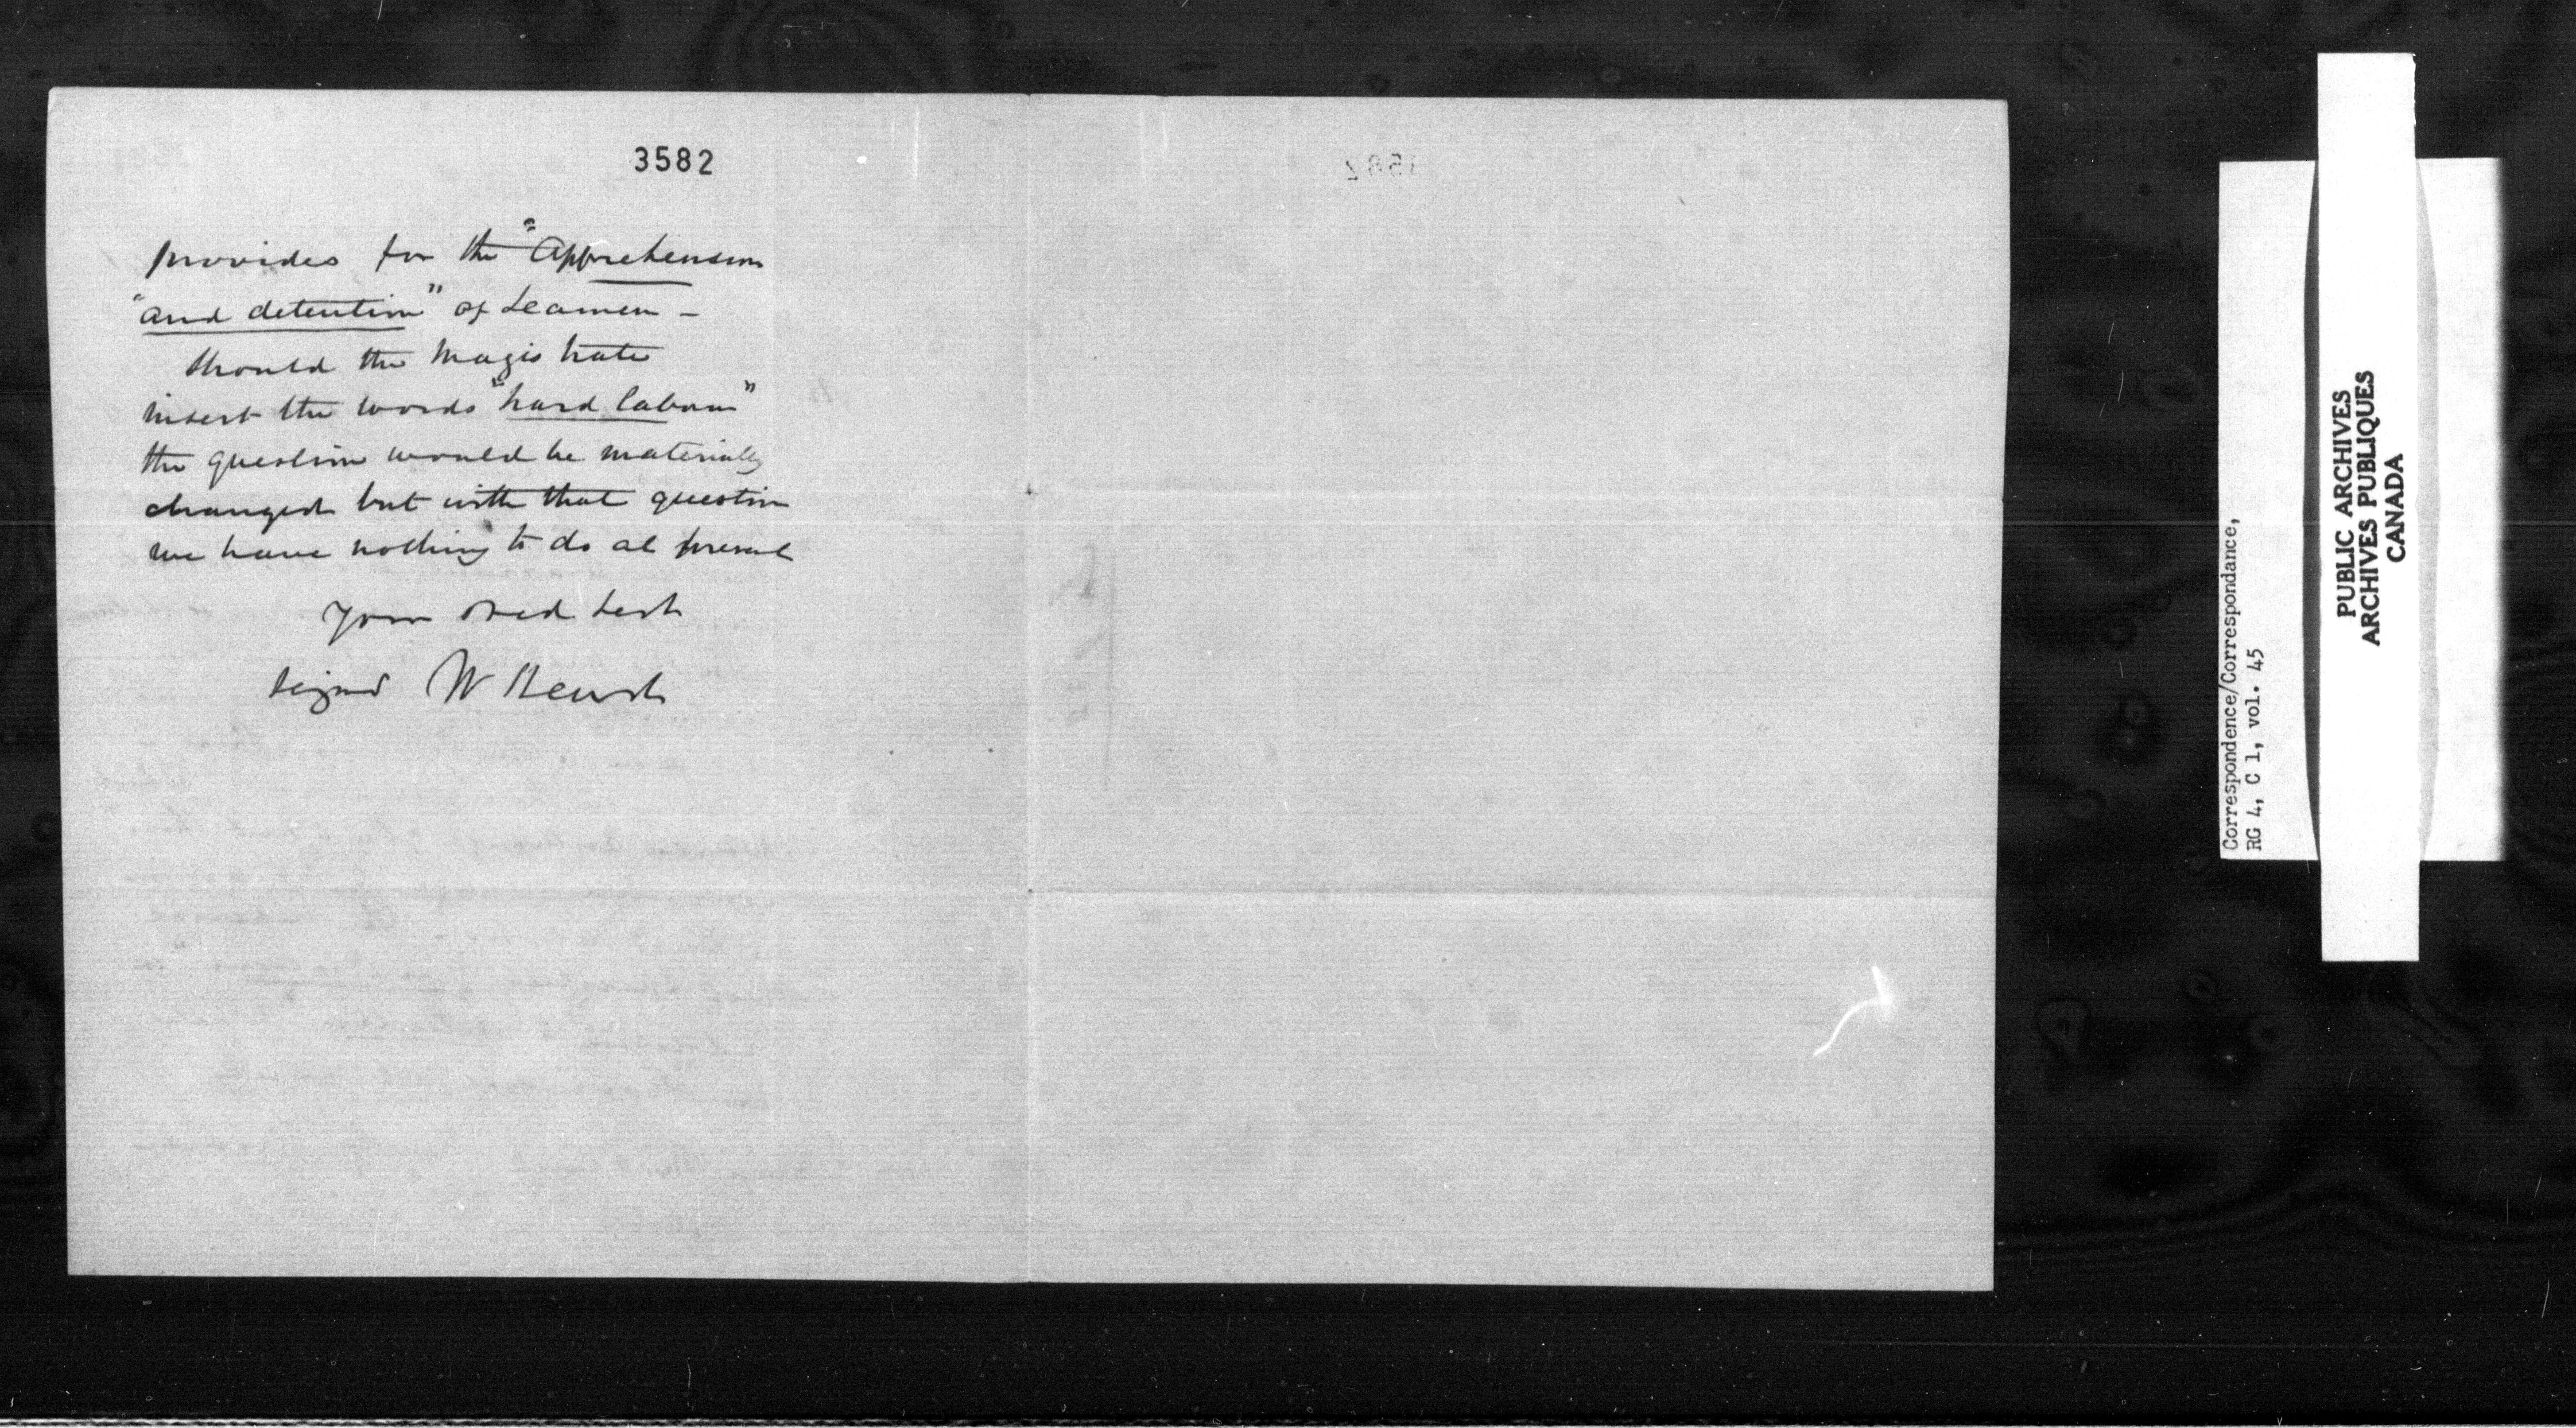 3582
provides for the "Apprehension
"and detention" of Seamen -
Should the Magistrate
insert the words "hard labour"
the question would be materially
changed but with that question
we have nothing to do at present
Your Obed Servt
Signed W
Correspondence/Correspondance,
RG 4, C 1, vol. 45
PUBLIC ARCHIVES
ARCHIVES PUBLIQUES
CANADA